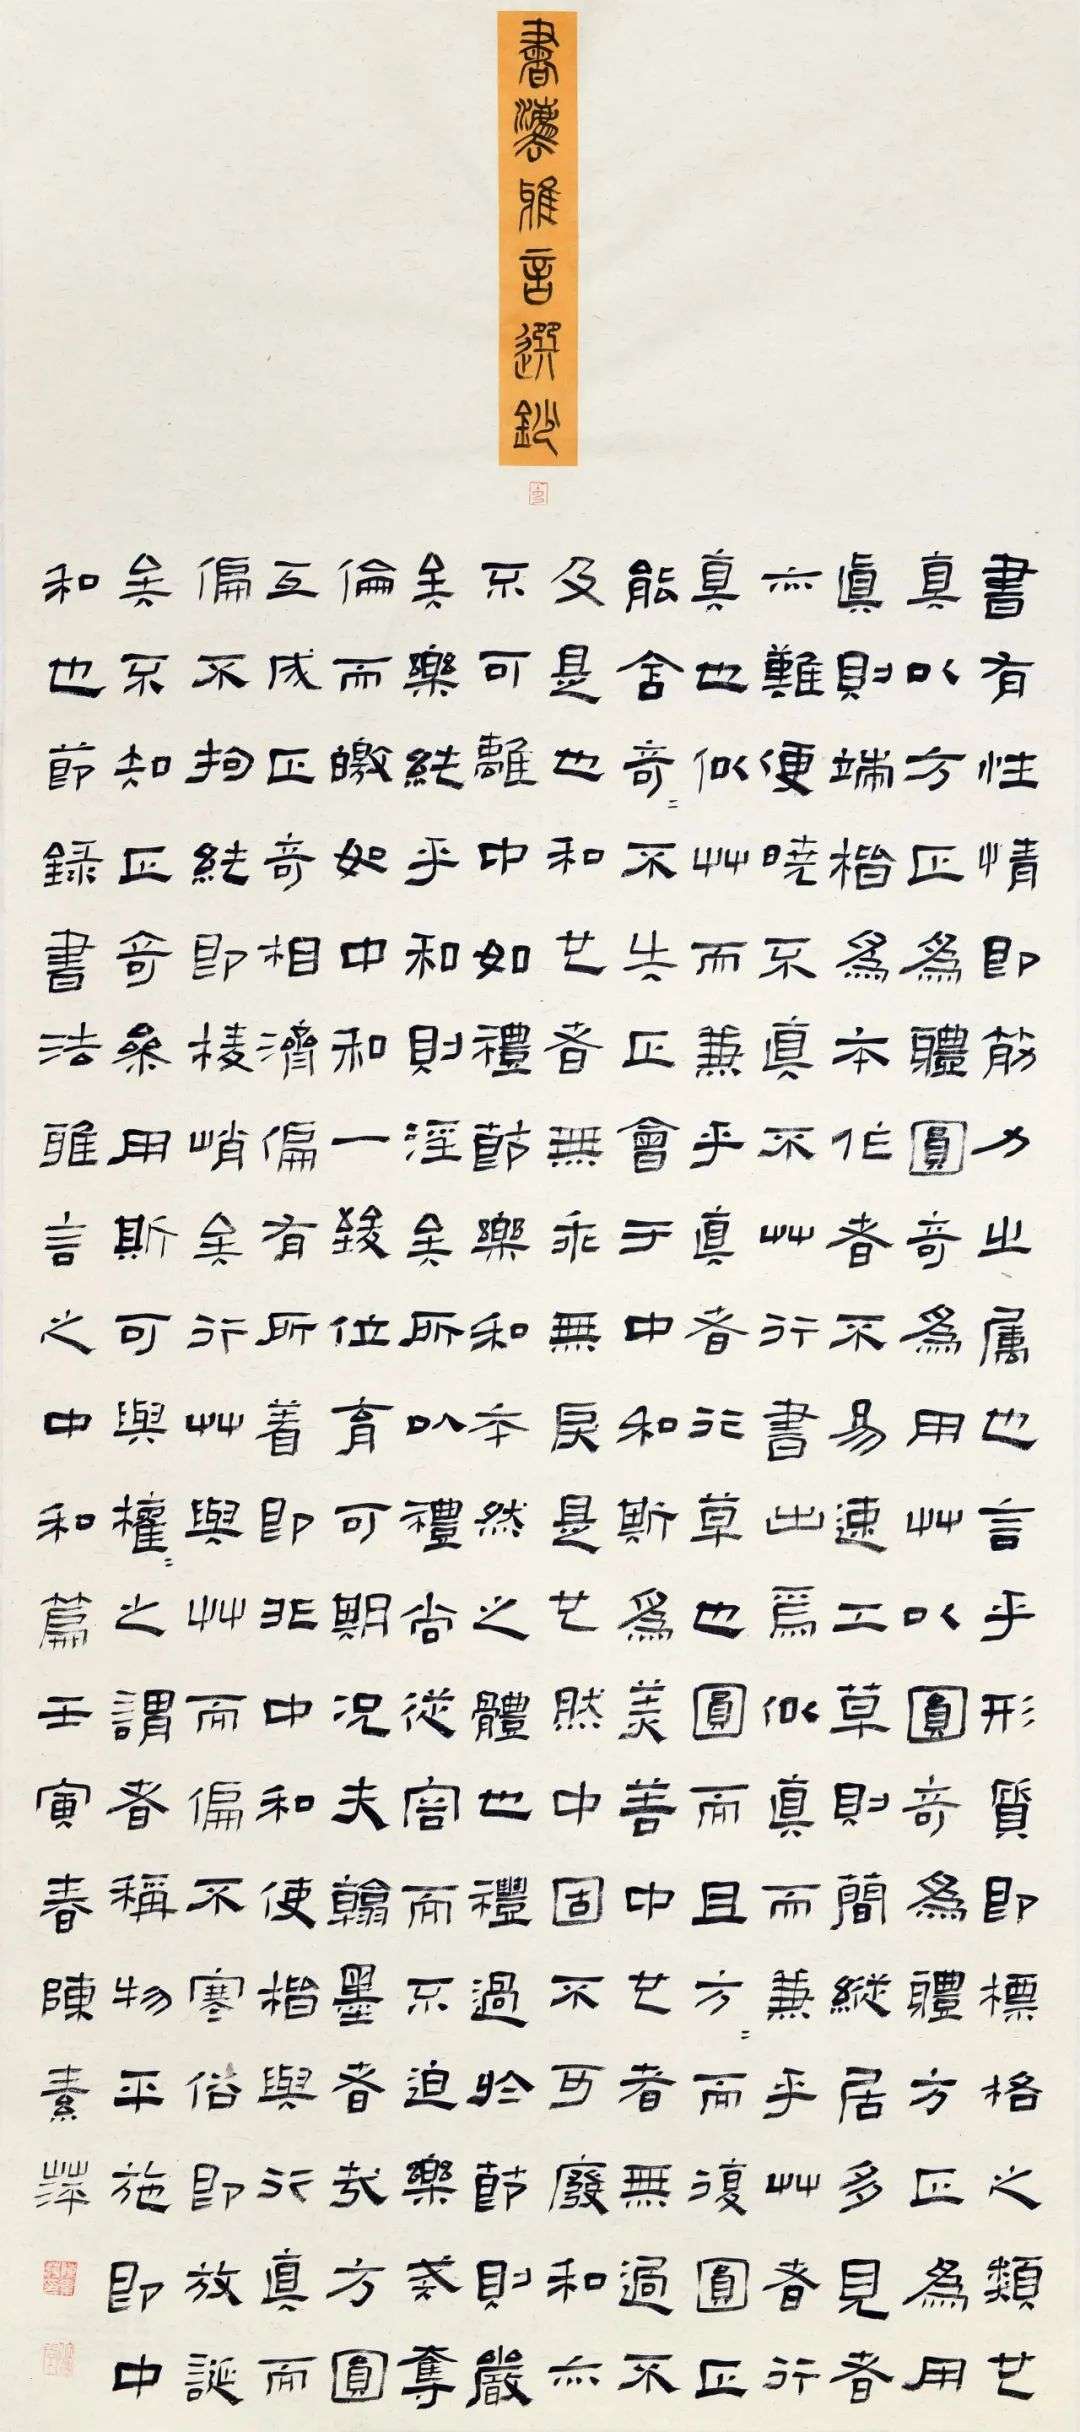 書灋雅言選鈔
書有性情即筋力之属也言乎形質即標格之類也
真以方正為體圓奇為用艸以圓奇為體方正為用
真則端楷為本作者不易速工草則簡縱居多見者
亦難便曉不真不艸行書出焉似真而兼乎艸者行
真也似艸而兼乎真者行草也圓而且方〻而復圓正
能含奇〻不失正會于中和斯為美善中也者無過不
及是也和也者無乖無戾是也然中固不可廢和亦
不可離中如禮節樂和本然之體也禮過於節則嚴
矣樂純乎和則淫矣所以禮尚從容而不迫樂戒奪
倫而皦如中和一致位育可期況夫翰墨者哉方圓
互成正奇相濟偏有所着即非中和使楷與行真而
偏不拘純即棱峭矣行艸與艸而偏不寒俗即放誕
矣不知正奇參用斯可與權〻之謂者稱物平施即中
和也節録書法雅言之中和篇壬寅春陳素萍